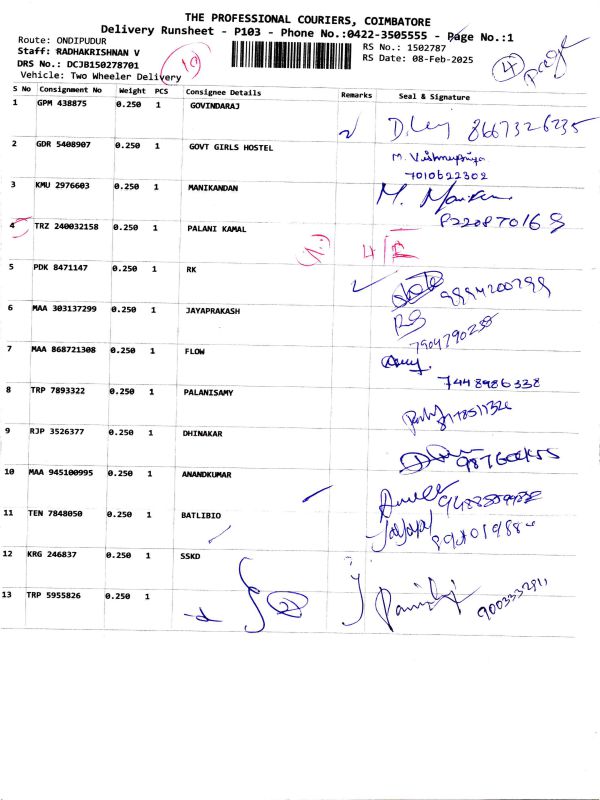 THE PROFESSIONAL COURIERS, COIMBATORE
Delivery Runsheet - P103 - Phone No.:0422-3505555 - Page No.:1
Route: ONDIPUDUR
RS No.: 1502787
Staff: RADHAKRISHNAN V
RS Date: 08-Feb-2025
DRS No.: DCJB150278701
Vehicle: Two Wheeler Delivery
4 page
S No Consignment No Weight PCS Consignee Details Remarks Seal & Signature
1 GPM 438875 0.250 1 GOVINDARAJ 8667326235
2 GDR 5408907 0.250 1 GOVT GIRLS HOSTEL M. Vishnupriya
7010622302
3 KMU 2976603 0.250 1 MANIKANDAN M.
4 TRZ 240032158 0.250 1 PALANI KAMAL
5 PDK 8471147 0.250 1 RK
6 MAA 303137299 0.250 1 JAYAPRAKASH
7904790255
7 MAA 868721308 0.250 1 FLOW
7448986338
8 TRP 7893322 0.250 1 PALANISAMY
9 RJP 3526377 0.250 1 DHINAKAR
10 MAA 945100995 0.250 1 ANANDKUMAR
11 TEN 7848050 0.250 1 BATLIBIO
12 KRG 246837 0.250 1 SSKD
13 TRP 5955826 0.250 1 2 9003332911